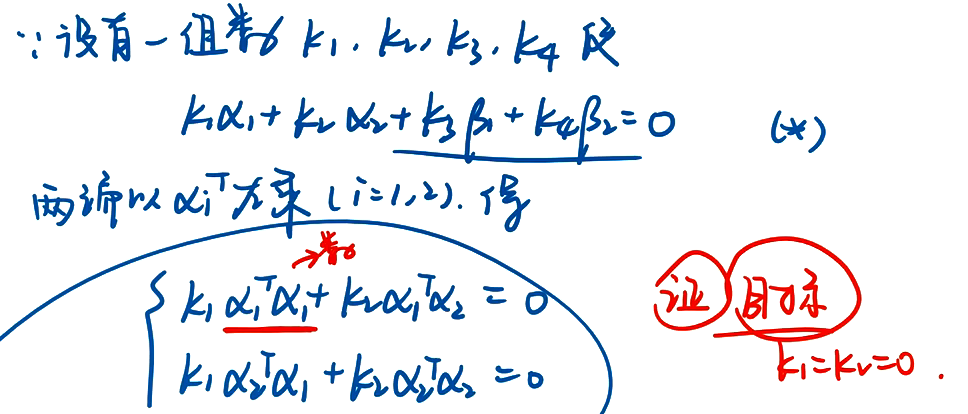 ∵设有一组数 k₁, k₂, k₃, k₄ 使
k₁α₁ + k₂α₂ + k₃β₁ + k₄β₂ = 0 (*)
两端以 αᵢᵀ 左乘 (i=1,2). 得
→数
k₁α₁ᵀα₁ + k₂α₁ᵀα₂ = 0
证 目标
k₁α₂ᵀα₁ + k₂α₂ᵀα₂ = 0
k₁=k₂=0.